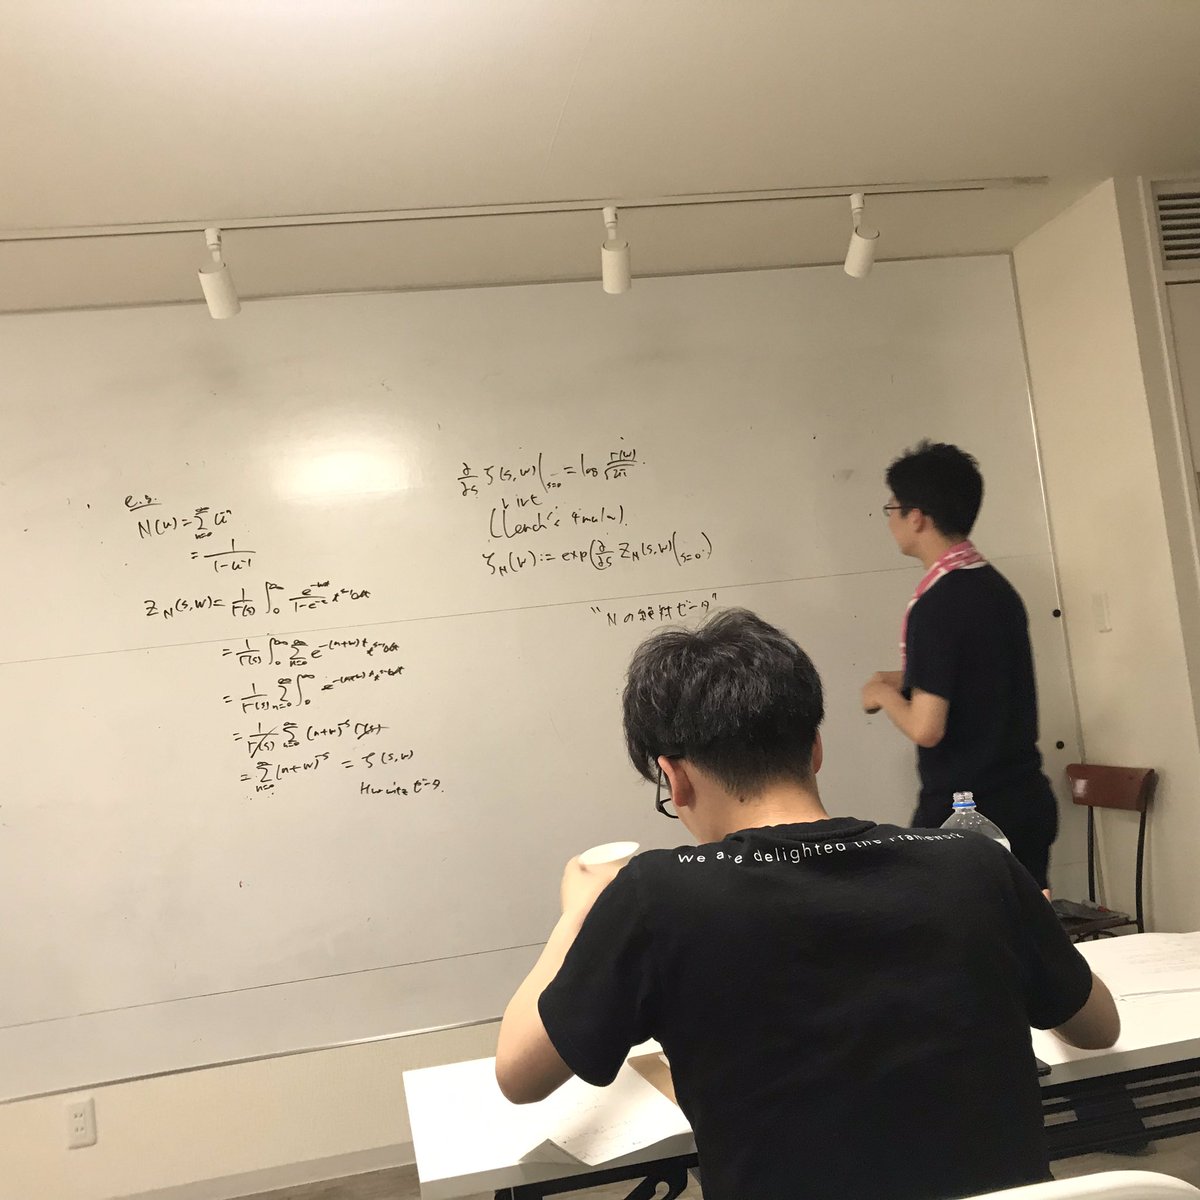 e.g.
N(u) = ∑_{n=0}^{∞} u^{-n}
= 1/(1-u^{-1})
Z_N(s,w) = 1/Γ(s) ∫_0^∞ e^{-wt}/(1-e^{-t}) t^{s-1} dt
= 1/Γ(s) ∫_0^∞ ∑_{n=0}^{∞} e^{-(n+w)t} t^{s-1} dt
= 1/Γ(s) ∑_{n=0}^{∞} ∫_0^∞ e^{-(n+w)t} t^{s-1} dt
= 1/Γ(s) ∑_{n=0}^{∞} (n+w)^{-s} Γ(s)
= ∑_{n=0}^{∞} (n+w)^{-s} = ζ(s,w)
Hurwitz ゼータ.
∂/∂s ζ(s,w)|_{s=0} = log Γ(w)/√2π.
(Lerch's formula).
ζ_N(w) := exp(∂/∂s Z_N(s,w)|_{s=0})
"Nの絶対ゼータ"
We are delighted the framework